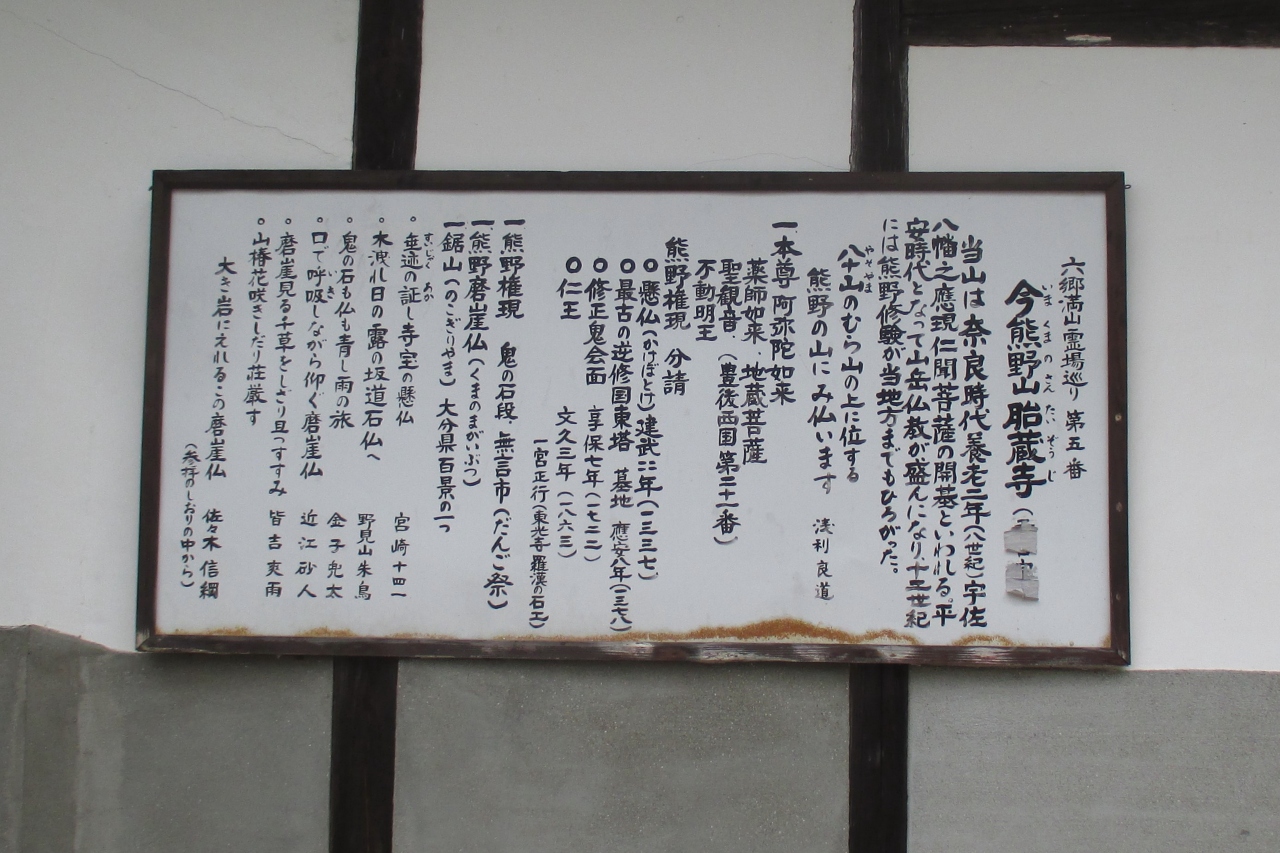 六郷満山霊場巡り 第五番
今熊野山胎蔵寺
いまくまのさんたいぞうじ
当山は奈良時代養老二年(八世紀)宇佐
八幡之應現仁聞菩薩の開基といわれる。平
安時代となって山岳仏教が盛んになり、十二世紀
には熊野修験が当地方までもひろがった。
八十山のむら山の上に位する
ややま
熊野の山にみ仏います 浅利良道
一、本尊 阿弥陀如来
薬師如来、地蔵菩薩
聖観音、(豊後西国第二十一番)
不動明王
熊野権現 分請
○懸仏(かけぼとけ)建武二年(一三三七)
○最古の逆修国東塔 墓地 應安八年(一三七八)
○修正鬼会面 享保七年(一七二二)
○仁王 文久三年(一八六三)
一宮正行(東光寺羅漢の石工)
一、熊野権現 鬼の石段、無言市(だんご祭)
一、熊野磨崖仏(くまのまがいぶつ)
一、鋸山(のこぎりやま)大分県百景の一つ
。垂迹の証し寺宝の懸仏 宮崎十四一
すいじゃく あか
。木洩れ日の露の坂道石仏へ 野見山朱鳥
。鬼の石も仏も青し雨の旅 金子兜太
。口で呼吸しながら仰ぐ磨崖仏 近江砂人
いき
。磨崖見る千草をしざり且つすすみ 皆吉爽雨
。山椿花咲きしだり荘厳す
大き岩にえれるこの磨崖仏 佐々木信綱
(参拝のしおりの中から)